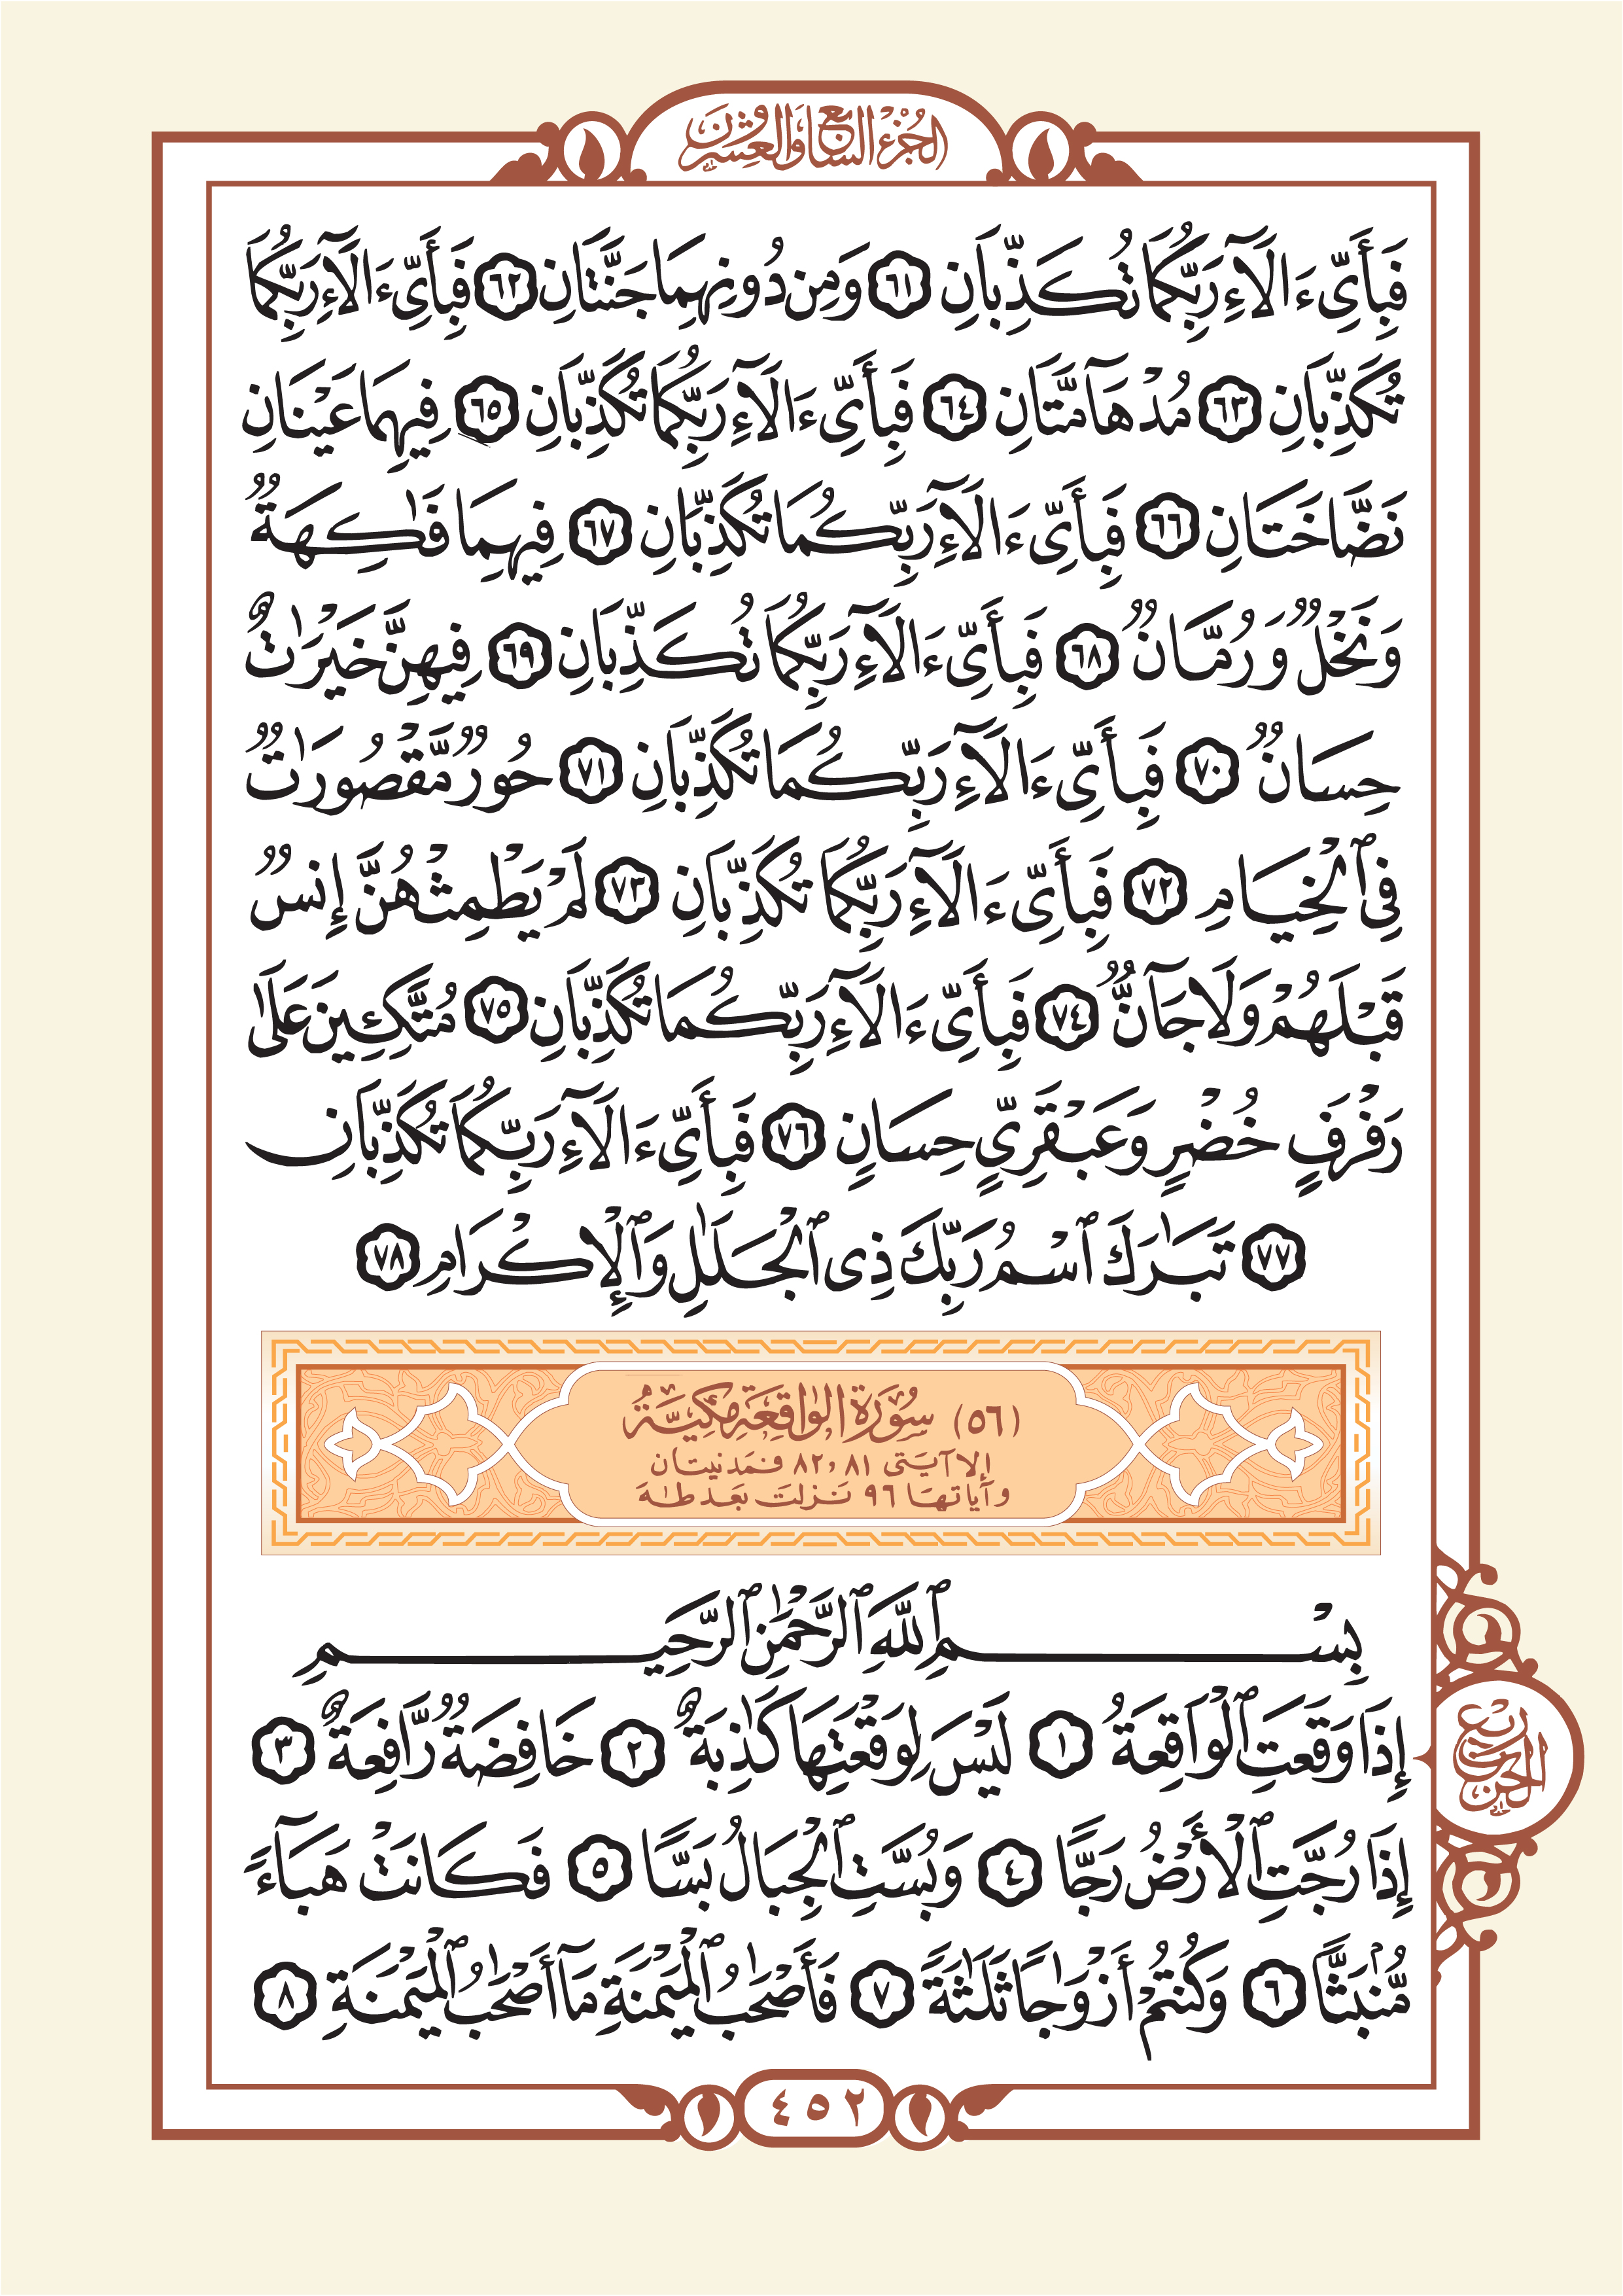 الجزء السابع والعشرون
فَبِأَيِّ ءَالَآءِ رَبِّكُمَا تُكَذِّبَانِ ٦١ وَمِن دُونِهِمَا جَنَّتَانِ ٦٢ فَبِأَيِّ ءَالَآءِ رَبِّكُمَا
تُكَذِّبَانِ ٦٣ مُدْهَآمَّتَانِ ٦٤ فَبِأَيِّ ءَالَآءِ رَبِّكُمَا تُكَذِّبَانِ ٦٥ فِيهِمَا عَيْنَانِ
نَضَّاخَتَانِ ٦٦ فَبِأَيِّ ءَالَآءِ رَبِّكُمَا تُكَذِّبَانِ ٦٧ فِيهِمَا فَٰكِهَةٌ
وَنَخْلٌ وَرُمَّانٌ ٦٨ فَبِأَيِّ ءَالَآءِ رَبِّكُمَا تُكَذِّبَانِ ٦٩ فِيهِنَّ خَيْرَٰتٌ
حِسَانٌ ٧٠ فَبِأَيِّ ءَالَآءِ رَبِّكُمَا تُكَذِّبَانِ ٧١ حُورٌ مَّقْصُورَٰتٌ
فِي ٱلْخِيَامِ ٧٢ فَبِأَيِّ ءَالَآءِ رَبِّكُمَا تُكَذِّبَانِ ٧٣ لَمْ يَطْمِثْهُنَّ إِنسٌ
قَبْلَهُمْ وَلَا جَآنٌّ ٧٤ فَبِأَيِّ ءَالَآءِ رَبِّكُمَا تُكَذِّبَانِ ٧٥ مُتَّكِـِٔينَ عَلَىٰ
رَفْرَفٍ خُضْرٍ وَعَبْقَرِيٍّ حِسَانٍ ٧٦ فَبِأَيِّ ءَالَآءِ رَبِّكُمَا تُكَذِّبَانِ
٧٧ تَبَٰرَكَ ٱسْمُ رَبِّكَ ذِي ٱلْجَلَٰلِ وَٱلْإِكْرَامِ ٧٨
(٥٦) سُورَةُ الوَاقِعَةِ مَكِّيَّةٌ
إلا آيتى ٨١ ، ٨٢ فمدنيتان
وآياتها ٩٦ نزلت بعد طه
بِسْمِ ٱللَّهِ ٱلرَّحْمَٰنِ ٱلرَّحِيمِ
إِذَا وَقَعَتِ ٱلْوَاقِعَةُ ١ لَيْسَ لِوَقْعَتِهَا كَاذِبَةٌ ٢ خَافِضَةٌ رَّافِعَةٌ ٣
إِذَا رُجَّتِ ٱلْأَرْضُ رَجًّا ٤ وَبُسَّتِ ٱلْجِبَالُ بَسًّا ٥ فَكَانَتْ هَبَآءً
مُّنۢبَثًّا ٦ وَكُنتُمْ أَزْوَٰجًا ثَلَٰثَةً ٧ فَأَصْحَٰبُ ٱلْمَيْمَنَةِ مَآ أَصْحَٰبُ ٱلْمَيْمَنَةِ ٨
ربع الحزب
٤٥٢